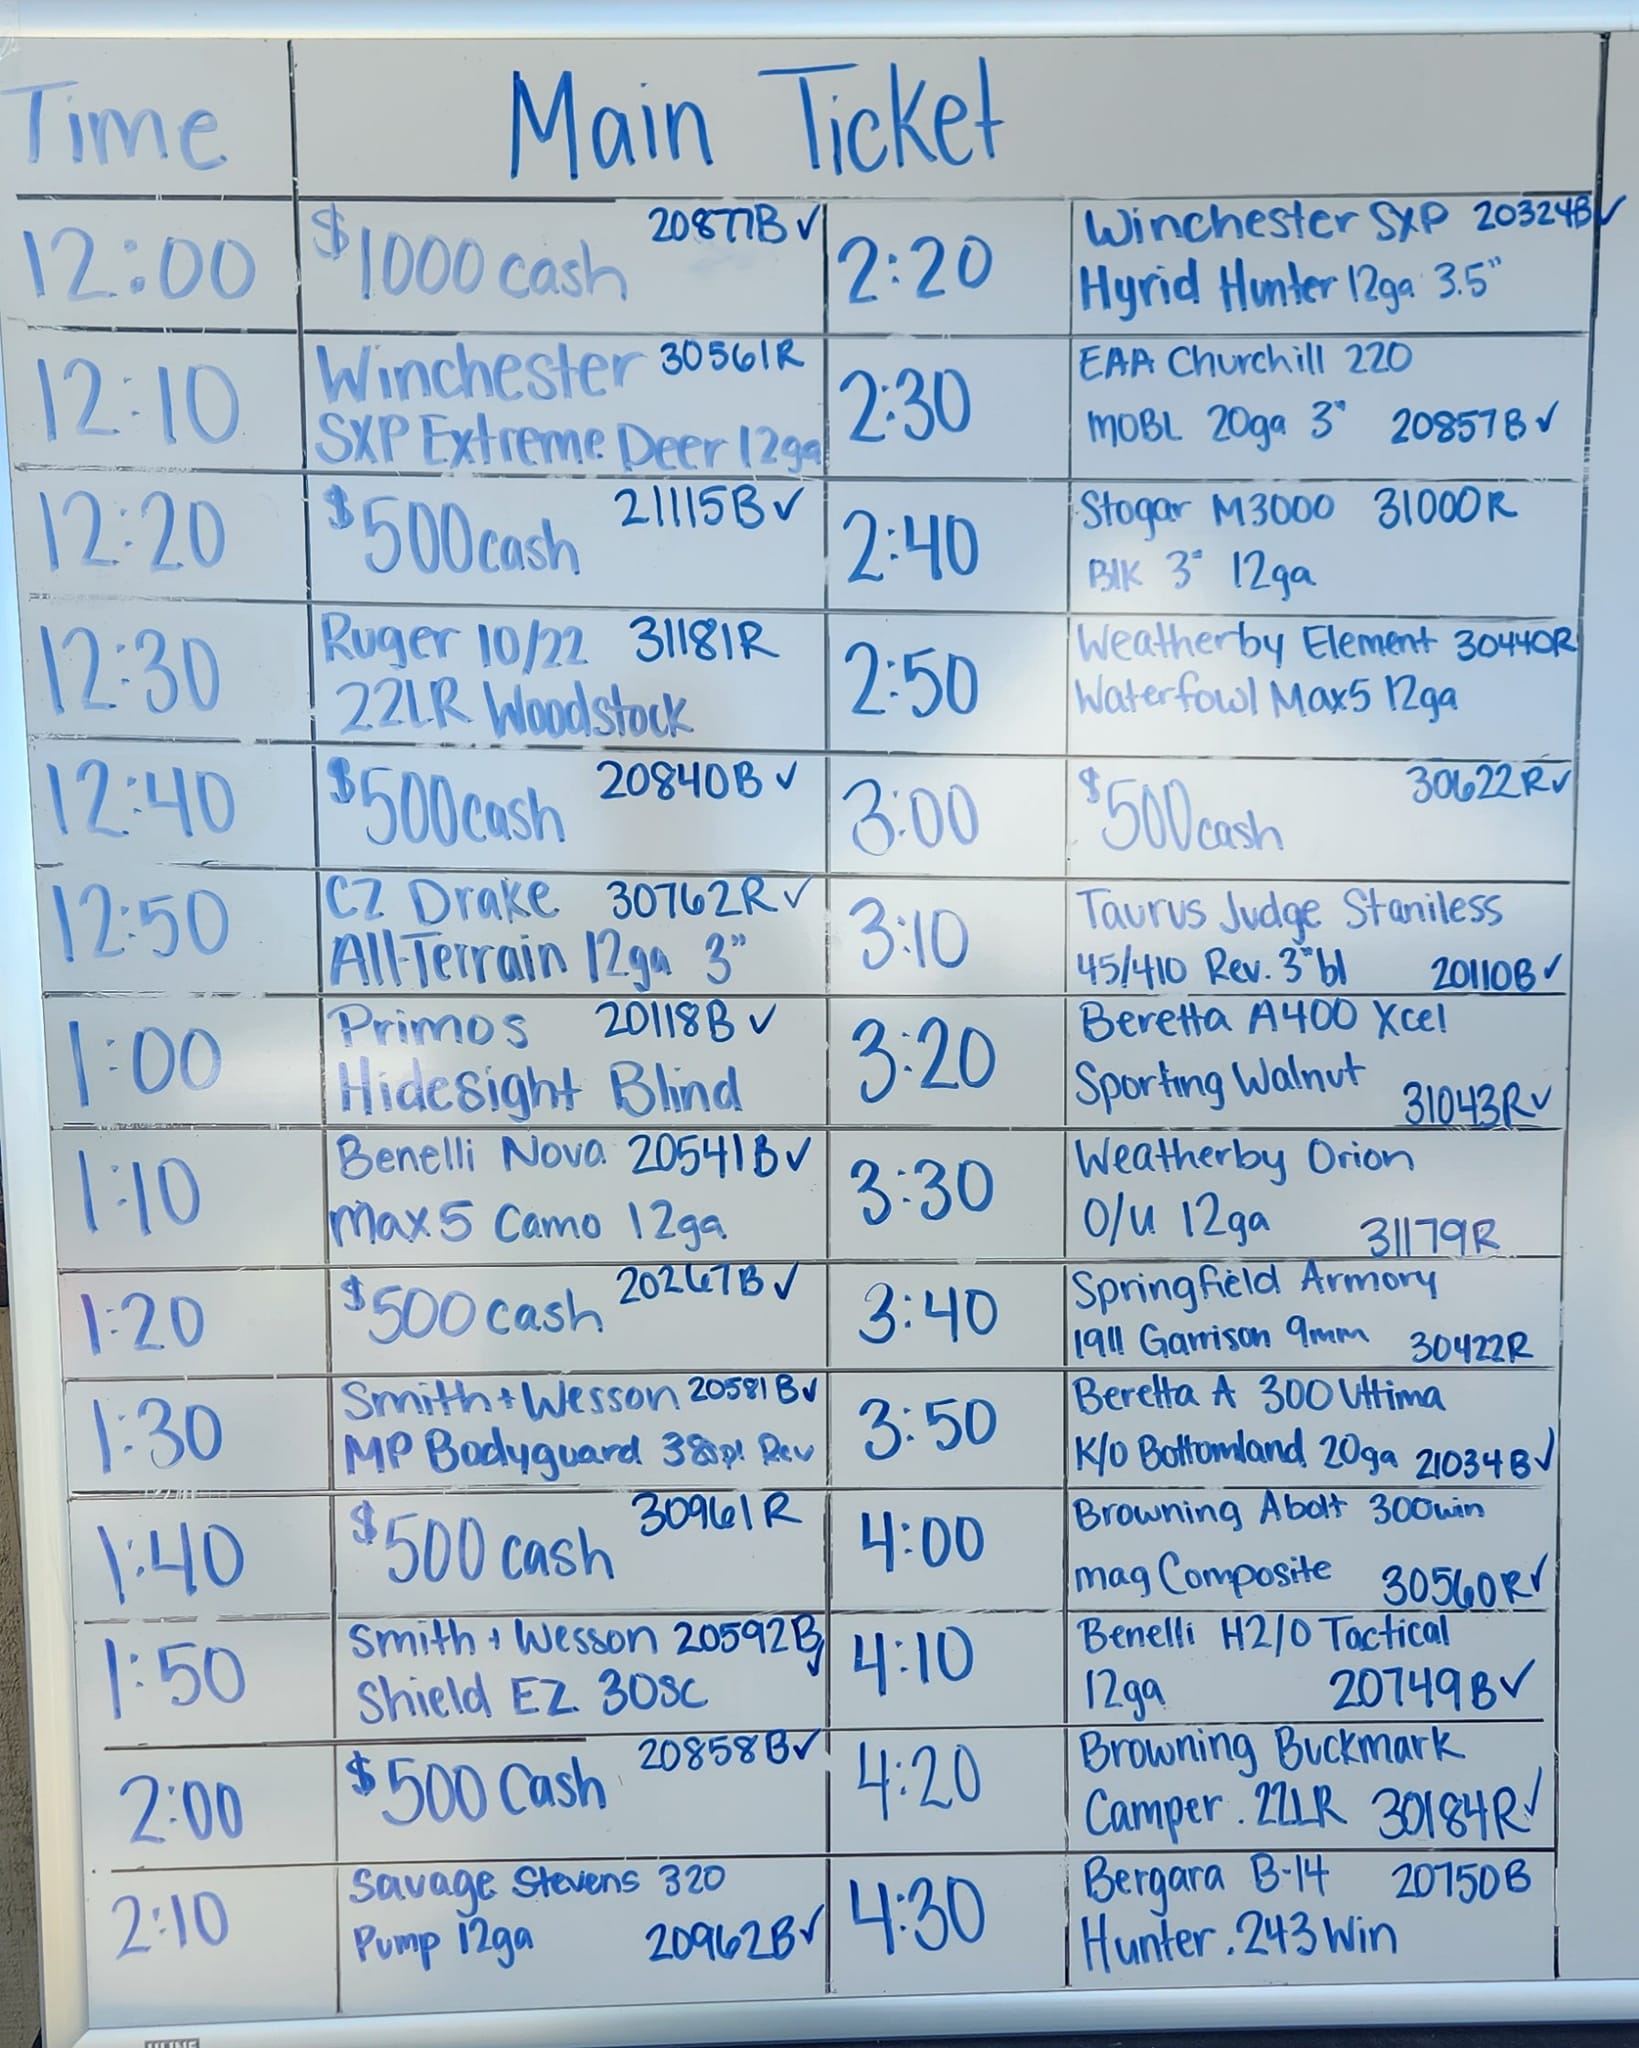 Time Main Ticket
12:00 $1000 cash 20877B ✓
12:10 Winchester 30561R
SXP Extreme Deer 12ga
12:20 $500 cash 21115B ✓
12:30 Ruger 10/22 31181R
22LR Woodstock
12:40 $500 cash 20840B ✓
12:50 CZ Drake 30762R ✓
All-Terrain 12ga 3"
1:00 Primos 20118B ✓
Hidesight Blind
1:10 Benelli Nova 20541B ✓
Max 5 Camo 12ga
1:20 $500 cash 20267B ✓
1:30 Smith + Wesson 20581B ✓
MP Bodyguard 38spl Rev
1:40 $500 cash 30961R
1:50 Smith + Wesson 20592B ✓
Shield EZ 30SC
2:00 $500 Cash 20858B ✓
2:10 Savage Stevens 320
Pump 12ga 20962B ✓
2:20 Winchester SXP 20324B ✓
Hyrid Hunter 12ga 3.5"
2:30 EAA Churchill 220
MOBL 20ga 3" 20857B ✓
2:40 Stogar M3000 31000R
Blk 3" 12ga
2:50 Weatherby Element 30440R
Waterfowl Max5 12ga
3:00 $500 cash 30622R ✓
3:10 Taurus Judge Staniless
45/410 Rev. 3"bl 20110B ✓
3:20 Beretta A400 Xcel
Sporting Walnut 31043R ✓
3:30 Weatherby Orion
O/U 12ga 31179R
3:40 Springfield Armory
1911 Garrison 9mm 30422R
3:50 Beretta A 300 Ultima
K/O Bottomland 20ga 21034B ✓
4:00 Browning Abolt 300win
mag Composite 30560R ✓
4:10 Benelli H2/O Tactical
12ga 20749B ✓
4:20 Browning Buckmark
Camper .22LR 30184R ✓
4:30 Bergara B-14 20750B
Hunter .243 Win